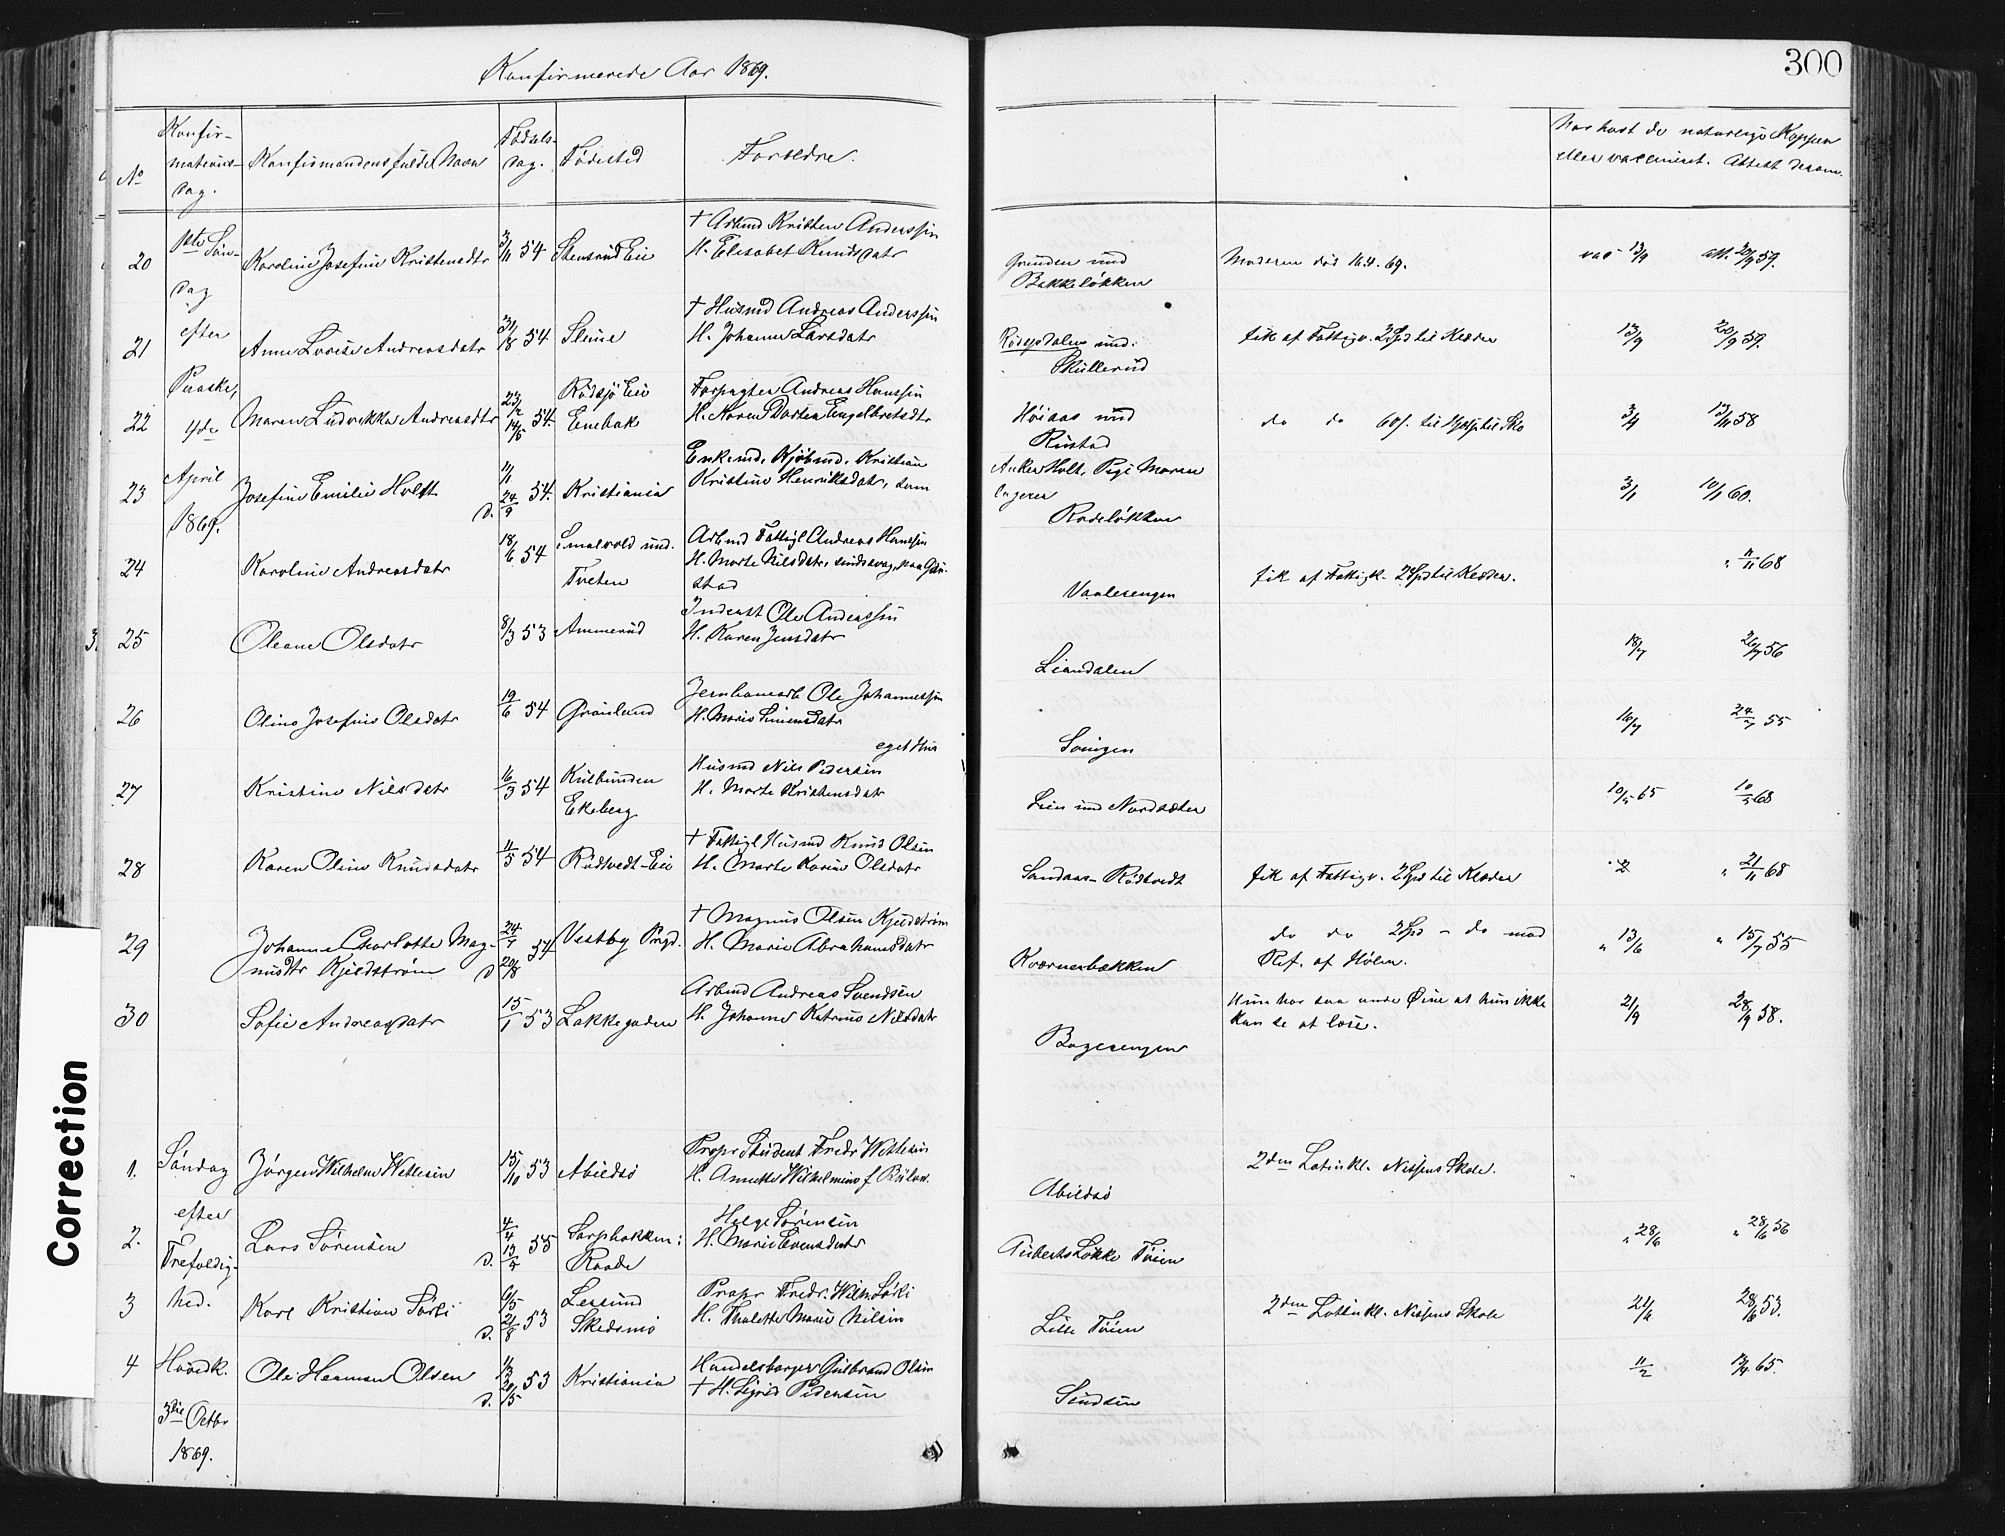 300
Konfirmerede Aar 1869.
No
Konfir-
mations-
dag.
Konfirmandens fulde Navn
Fødsels-
dag.
Fødested
Forældre.
Har havt de naturlige Kopper
eller vaccineret. Attest derom.
1ste Søn-
dag
efter
Paaske,
4de
April
1869.
20 Karoline Josefine Kristensdtr 3/11 54 Stensrud Eie
† Arbmd Kristen Anderssøn
H. Elisabet Knudsdatr
Grunden und
Bakkeløkken
Moderen død 16.4.69.
vac 13/9 att. 20/9 59.
21 Anne Lovise Andreasdatr 31/8 54
† Husmd Andreas Anderssøn
H. Johanne Larsdatr
und:
Skullerud
fik af Fattigv. 2 Spd til Klæder
13/9 20/9 59.
22 Maren Ludvikka Andreasdtr 23/2 54.
14/5
Rødsjø Eie
Enebak
Forpagter Andreas Hanssøn
H. Karen Dortea Engelbretsdtr
Høiaas und
Rustad
do do
3/4 13/11 58
23 Josefine Emilie Holst 54. Kristiania
d. 24/9
Enkemd. Kristian
Kristine Henriksdatr, som
Anker Holt, Pige Maren
Rodeløkken
3/1 10/1 60.
24 Karoline Andreasdatr 18/6 54 Smalvold und.
Tveten
Arbmd Fattigl Andreas Hanssøn
H. Marte Nilsdatr, sindssvag, paa Gau-
stad
Vaalerengen
fik af Fattigk. 2 Spd til Klæder.
" 11 68
25 Oleane Olsdatr 8/3 53 Ammerud
Inderst Ole Anderssøn
H. Karen Jensdatr
Liandalen
18/7 26/7 56
26 Oline Josefine Olsdatr 19/6 54 Grønland
Ole Johannessøn
H. Marie Simensdatr
Svingen
16/7 24/7 55
27 Kristine Nilsdatr 16/3 54 Kulbunden
Ekeberg
eget Hus
Husmd Nils Pedersøn
H. Marte Kristensdatr
Lien und Nordsæter
10/5 65 10/5 68
28 Karen Oline Knudsdatr 11/5 54 Rødtvedt-Eie
† Fattigl Husmd Knud Olsen
H. Marte Karine Olsdatr
Sandaas-Rødtvedt
fik af Fattigv. 2 Spd til Klæder
" 21/11 68
29 Johanne Charlotte Mag- 24/7 54 Vestby Prgd.
nusdtr Kjeldstrøm d 20/8
† Magnus Olsen Kjeldstrøm
H. Marie Abrahamsdatr
Kværnerbækken
do do 2 Spd - do mod
Ref. af Hølen.
" 13/6 " 15/7 55
30 Sofie Andreasdatr 15/1 53 Lakkegaden
Arbmd Andreas Svendsen
H. Johanne Katrine Nilsdatr
Bogerengen
Hun har saa onde Øine at hun ikke
kan se at læse.
21/9 28/9 58.
Søndag
efter
Trefoldig-
hed.
Hovedk.
3die Octbr
1869.
1. Jørgen Wilhelm Wetlesen 15/10 53 Abildsø
Propr Student Fredr Wetlesen
H. Annette Wilhelmine f Bülow.
Abildsø
2den Latinkl. Nissens Skole.
2. Lars Sørensen 4/4 55 Sarpbakken:
d. Raade
Helge Sørensen
H. Marie Evensdatr
Auberts Løkke Tøien
" 28/6 " 28/6 56
3 Karl Kristian Sørli 6/5 53
d. 21/8 Skedsmo
Propr Fredr. Wilh. Sørli
H. Thalette Marie Nilsen
Lille Tøien
2den Latinkl. Nissens Skole
21/6 28/6 53.
4 Ole Herman Olsen 53 Kristiania
d. 20/5
Handelsborger Gulbrand Olsen
† H. Sigrid Pedersen
11/2 65.
Correction